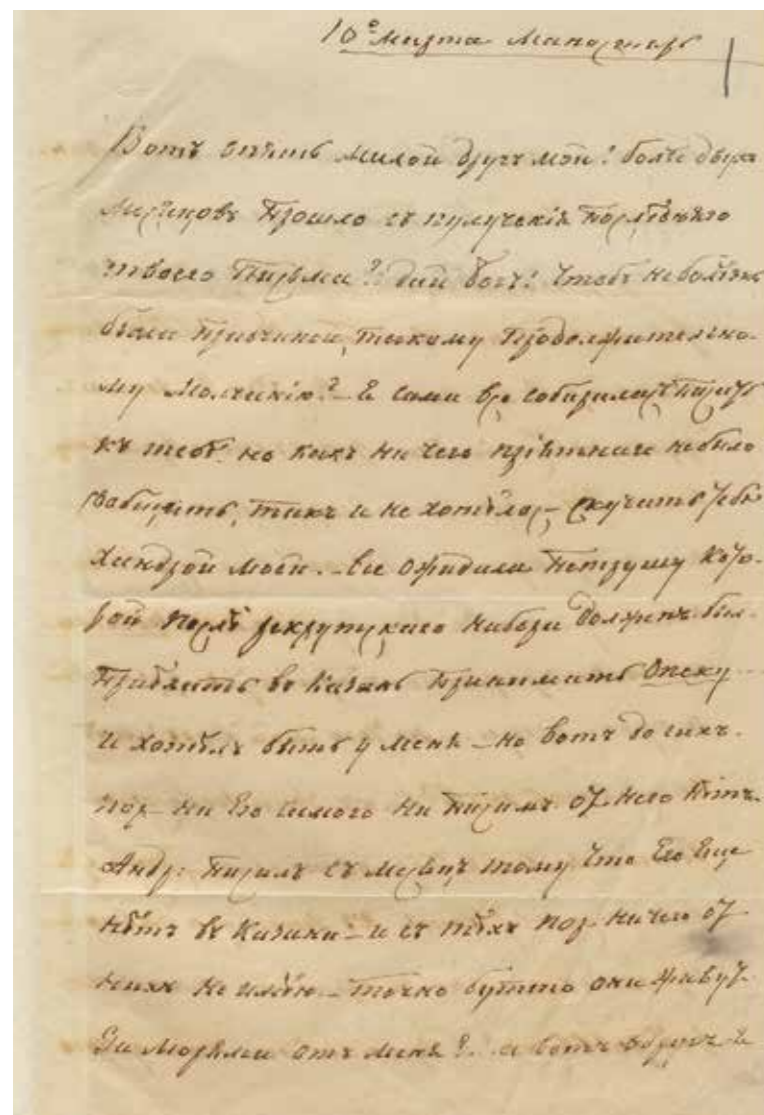 10е Марта Монастырь
Вотъ опять милой другъ мой! более двухъ
Месяцовъ прошло съ получения последняго
твоего Письма? дай богъ! Чтобъ не болезнь
была Причиной, такому Продолжительно-
му Молчанию? – Я сама все собиралась писать
къ тебе. но какъ ни чего приятнаго небыло
сабщить, такъ и не хотелось скучить тебе
Хандрой моей. – все ожидала Петрушу Кото-
рой после рекрутскаго набора долженъ был
Приехать въ Казань Принимать Опеку
и хотелъ быть у меня – но вотъ до сихъ
пор ни Его самого ни писемъ от него нетъ.
Андр: писалъ съ месяцъ тому что Его Еще
нетъ въ Казани – и съ техъ пор ничего от
нихъ не имею – точно бутто они живут
За Морями отъ меня? а вотъ вдругъ и